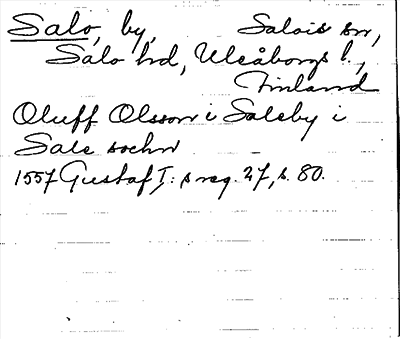 Salo, by, Salois sn,
Salo hd, Uleåborgs l.,
Finland
Oluff Olsson i Saleby i
Sale sochn
1557 Gustaf I:s reg. 27, s. 80.